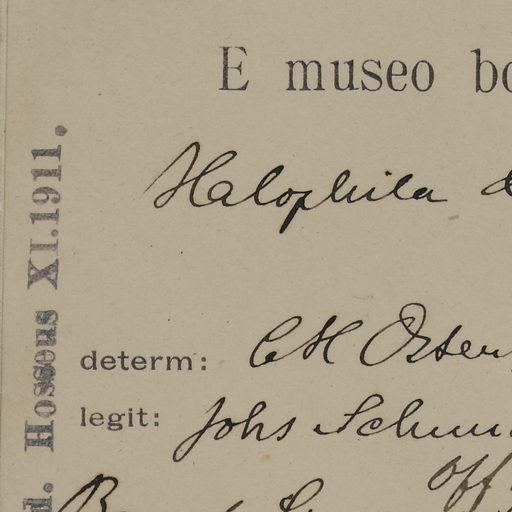 E museo bo
Halophila
determ: CH Osten
legit: Johs Schm
off
d. Hosseus XI.1911.